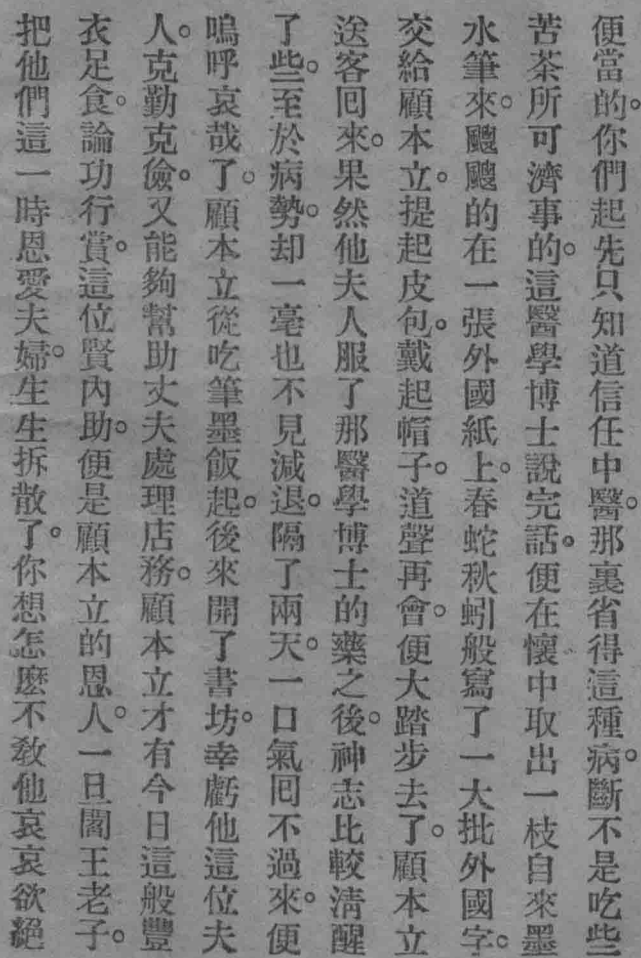 便當的。你們起先只知道信任中醫。那裏省得這種病。斷不是吃些
苦茶所可濟事的。這醫學博士說完話。便在懷中取出一枝自來墨
水筆來。颼颼的在一張外國紙上。春蛇秋蚓般寫了一大批外國字。
交給顧本立。提起皮包。戴起帽子。道聲再會。便大踏步去了。顧本立
送客囘來。果然他夫人服了那醫學博士的藥之後。神志比較淸醒
了些。至於病勢。却一毫也不見減退。隔了兩天。一口氣囘不過來。便
嗚呼哀哉了。顧本立從吃筆墨飯起。後來開了書坊。幸虧他這位夫
人。克勤克儉。又能夠幫助丈夫處理店務。顧本立才有今日這般豐
衣足食。論功行賞。這位賢內助。便是顧本立的恩人。一旦閻王老子。
把他們這一時恩愛夫婦。生生拆散了。你想怎麽不敎他哀哀欲絕